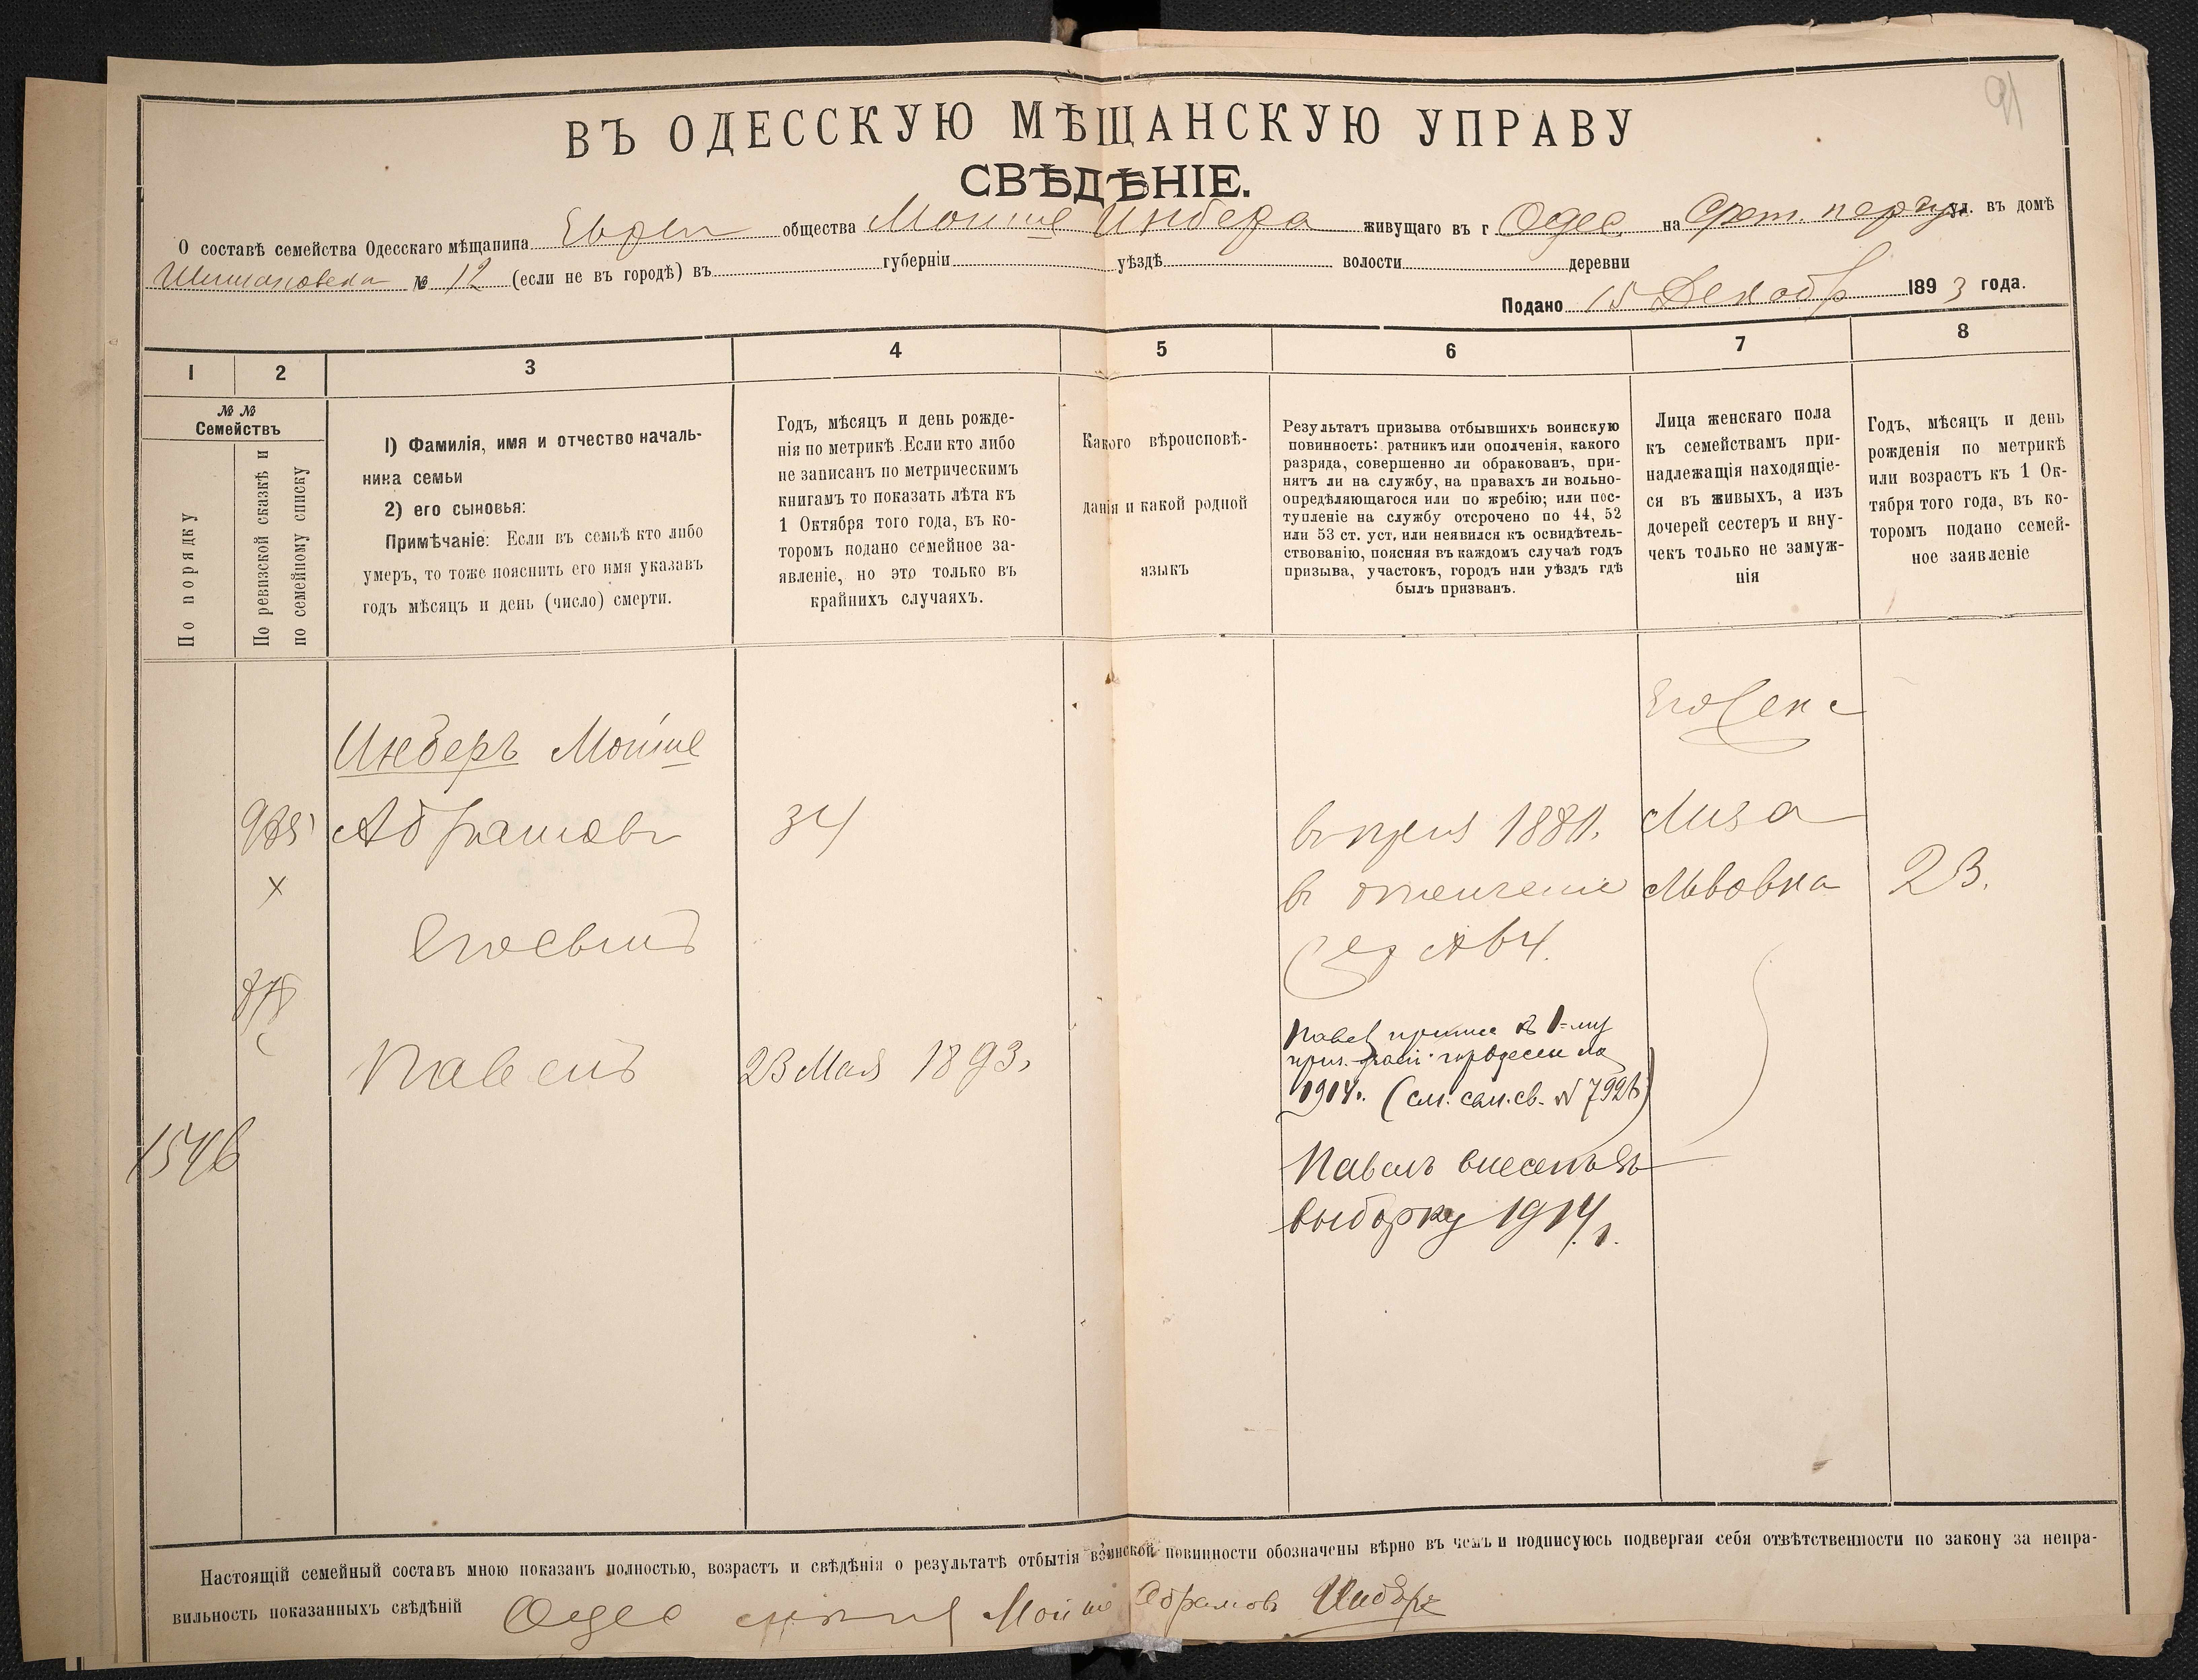 91
ВЪ ОДЕССКУЮ МѢЩАНСКУЮ УПРАВУ
СВѢДѢНІЕ.
О составѣ семейства Одесскаго мѣщанина общества Мойше Инбера живущаго въ г Одес. на ул. въ домѣ
№ 12 (если не въ городѣ) въ губерніи уѣздѣ волости деревни
Подано 15 Декабр 1893 года.
1 2 3 4 5 6 7 8
№ №
Семействъ
По порядку
По ревизской сказкѣ и
по семейному списку
1) Фамилія, имя и отчество началь-
ника семьи
2) его сыновья:
Примѣчаніе: Если въ семьѣ кто либо
умеръ, то тоже пояснить его имя указавъ
годъ мѣсяцъ и день (число) смерти.
Годъ, мѣсяцъ и день рожде-
нія по метрикѣ. Если кто либо
не записанъ по метрическимъ
книгамъ то показать лѣта къ
1 Октября того года, въ ко-
торомъ подано семейное за-
явленіе, но это только въ
крайнихъ случаяхъ.
Какого вѣроисповѣ-
данія и какой родной
языкъ
Результатъ призыва отбывшихъ воинскую
повинность: ратникъ или ополченія, какого
разряда, совершенно ли обракованъ, при-
нятъ ли на службу, на правахъ ли вольно-
опредѣляющагося или по жребію; или пос-
тупленіе на службу отсрочено по 44, 52
или 53 ст. уст. или неявился къ освидѣтель-
ствованію, поясняя въ каждомъ случаѣ годъ
призыва, участокъ, городъ или уѣздъ гдѣ
былъ призванъ.
Лица женскаго пола
къ семействамъ при-
надлежащія находящіе-
ся въ живыхъ, а изъ
дочерей сестеръ и вну-
чекъ только не замуж-
нія
Годъ, мѣсяцъ и день
рожденія по метрикѣ
или возрастъ къ 1 Ок-
тября того года, въ ко-
торомъ подано семей-
ное заявленіе
Инберъ Мойше
Абрамовъ 34 1881. Лиза
Львовна 23.
Его сынъ
Павелъ 23 Мая 1893.
Павел къ 1-му
1914г. (см. сам. св. №
1546
Павелъ внесенъ въ
выборку 1914 г.
Настоящій семейный составъ мною показанъ полностью, возрастъ и свѣдѣнія о результатѣ отбытія воинской повинности обозначены вѣрно въ чемъ и подписуюсь подвергая себя отвѣтственности по закону за непра-
вильность показанныхъ свѣдѣній Одес Мойше Абрамовъ Инберъ